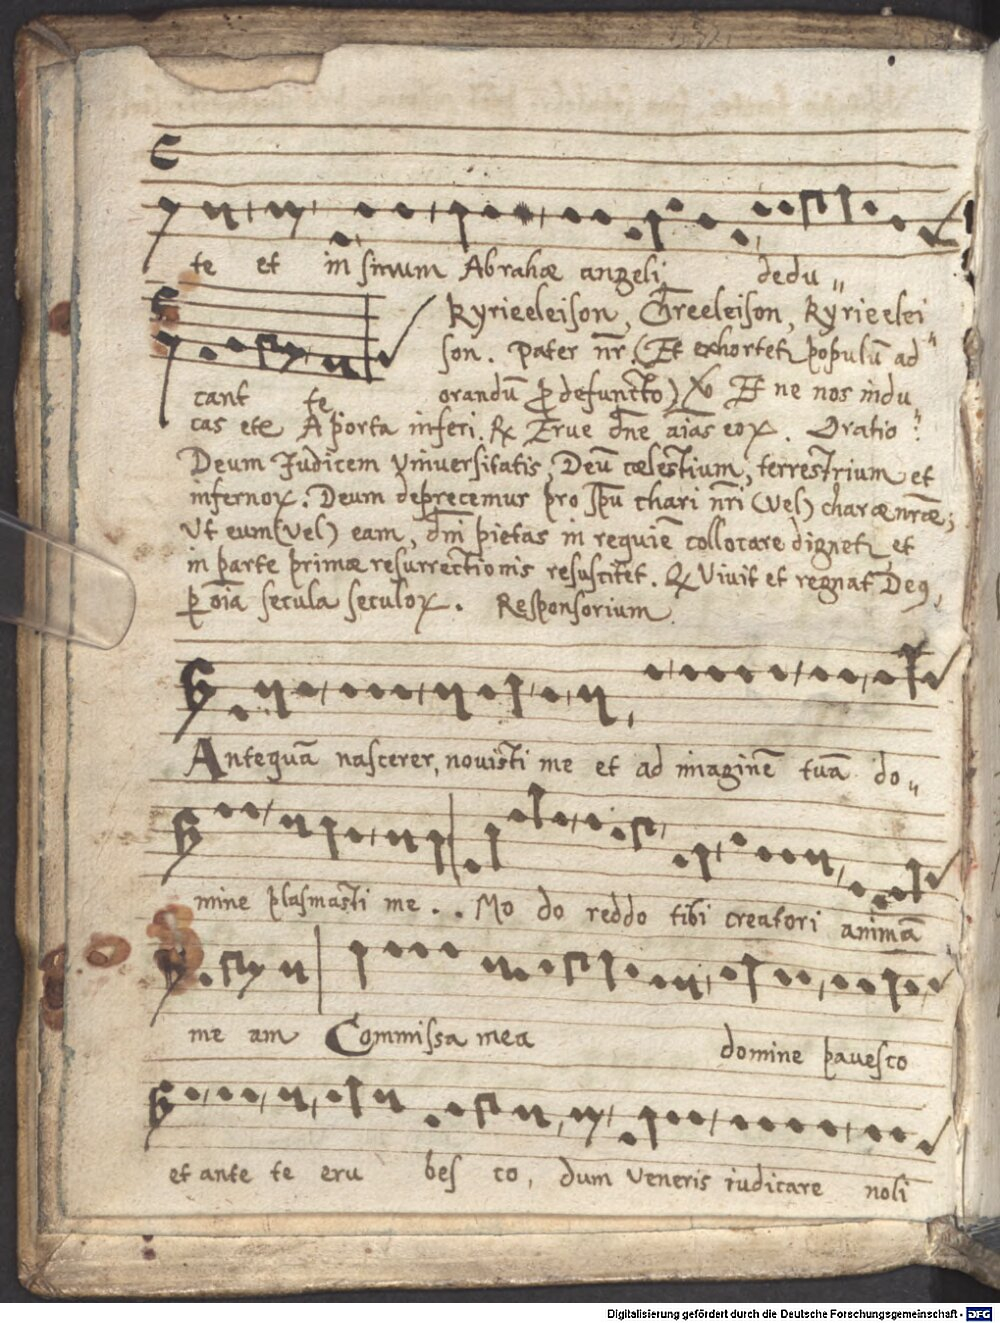 te et in sinum Abrahæ angeli dedu„
Kyrieeleison, Chreeleison, Kyrieelei„
son. Pater nr̄ (Et exhortetʳ populū ad
cant te orandū ꝓ defuncto) ℣ Et ne nos indu„
cas etc A porta inferi. ℞ Erue dn̄e aīas eoꝝ. Oratio:
Deum Judicem Vniuersitatis, Deū cœlestium, terrestrium et
infernoꝝ: Deum deprecemur pro sp̄u chari nr̄i (vel) charæ nr̄æ;
Vt eum (vel) eam, dn̄i pietas in requiē collocare dignetʳ, et
in parte primæ resurrectionis resuscitet. ℞ Viuit et regnat Deꝰ,
ꝑ oīa secula seculoꝝ. Responsorium.
Antequā nascerer, nouisti me et ad imaginē tuā do„
mine plasmasti me.. Mo do reddo tibi creatori animā
me am Commissa mea domine pauesco
et ante te eru bes co, dum veneris iudicare noli
Digitalisierung gefördert durch die Deutsche Forschungsgemeinschaft - DFG